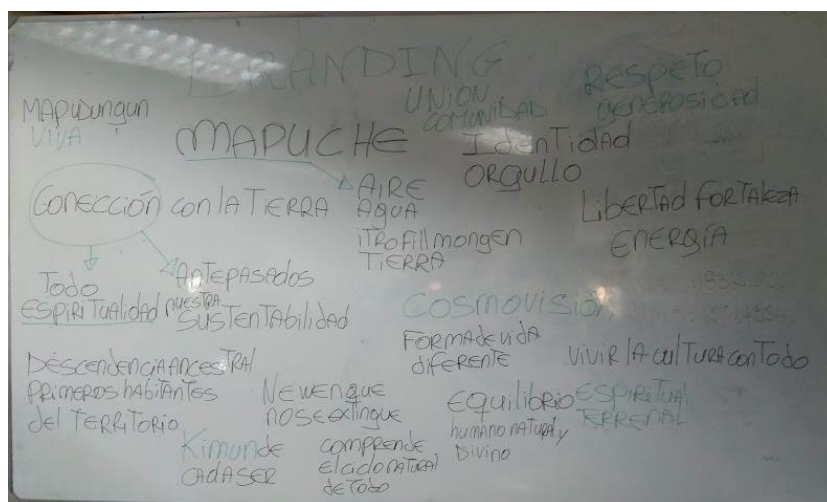 BRANDING
MAPUDUNGUN
VIVA
MAPUCHE
UNION
COMUNIDAD
RESPETO
generosidad
Identidad
ORGULLO
CONECCIÓN con lA TIERRA
AIRE
AGUA
iTROFillmongen
TIERRA
LibERTAd FORTAlEZA
ENERGÍA
Todo
ESPIRITUALIDAD
ANTEPASADOS
NUESTRA
SUSTENTAbilidad
COSMOVISIÓN
FORMA de vidA
diFERENTE
ViViR lA CULTURA CON TODO
DESCENdENCiA ANCESTRAl
PRIMEROS hAbiTANTES
del TERRiTORIO
NEWEN QUE
NO SE EXTINGUE
EQUilibRiO
humANO NATURAl y
Divino
ESPIRITUAL
TERRENAL
Kimun de
CADA SER
COMPRENDE
El ciclo NATURAl
de Todo